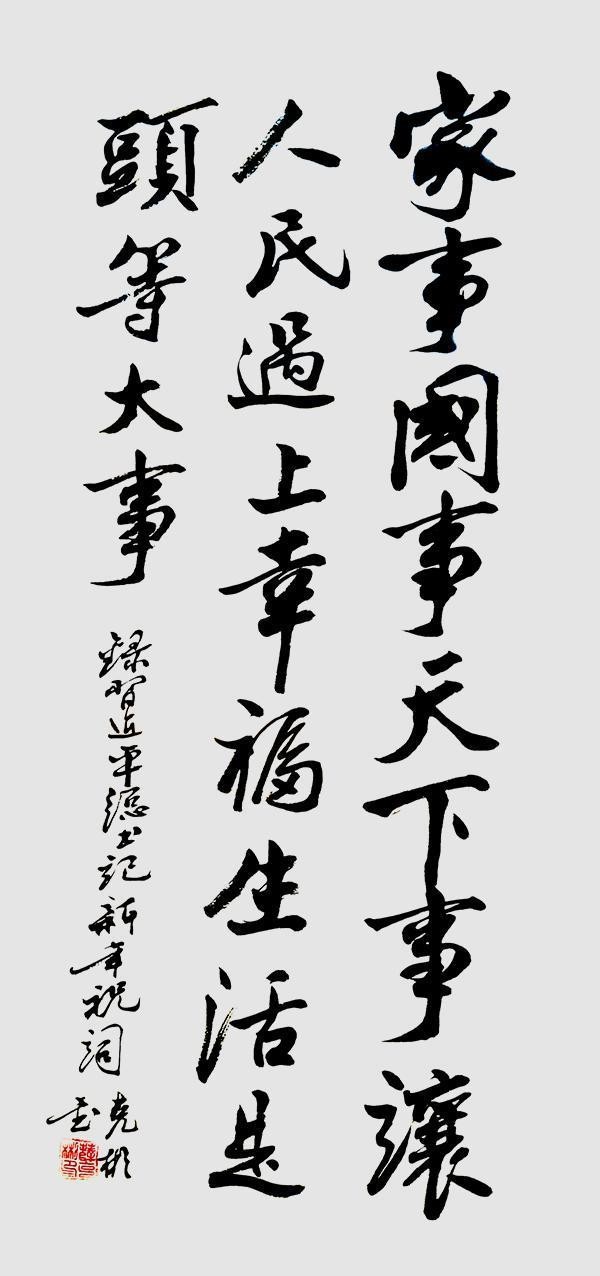 家事國事天下事讓
人民過上幸福生活是
頭等大事
録習近平總书记新年祝詞
克彬
书